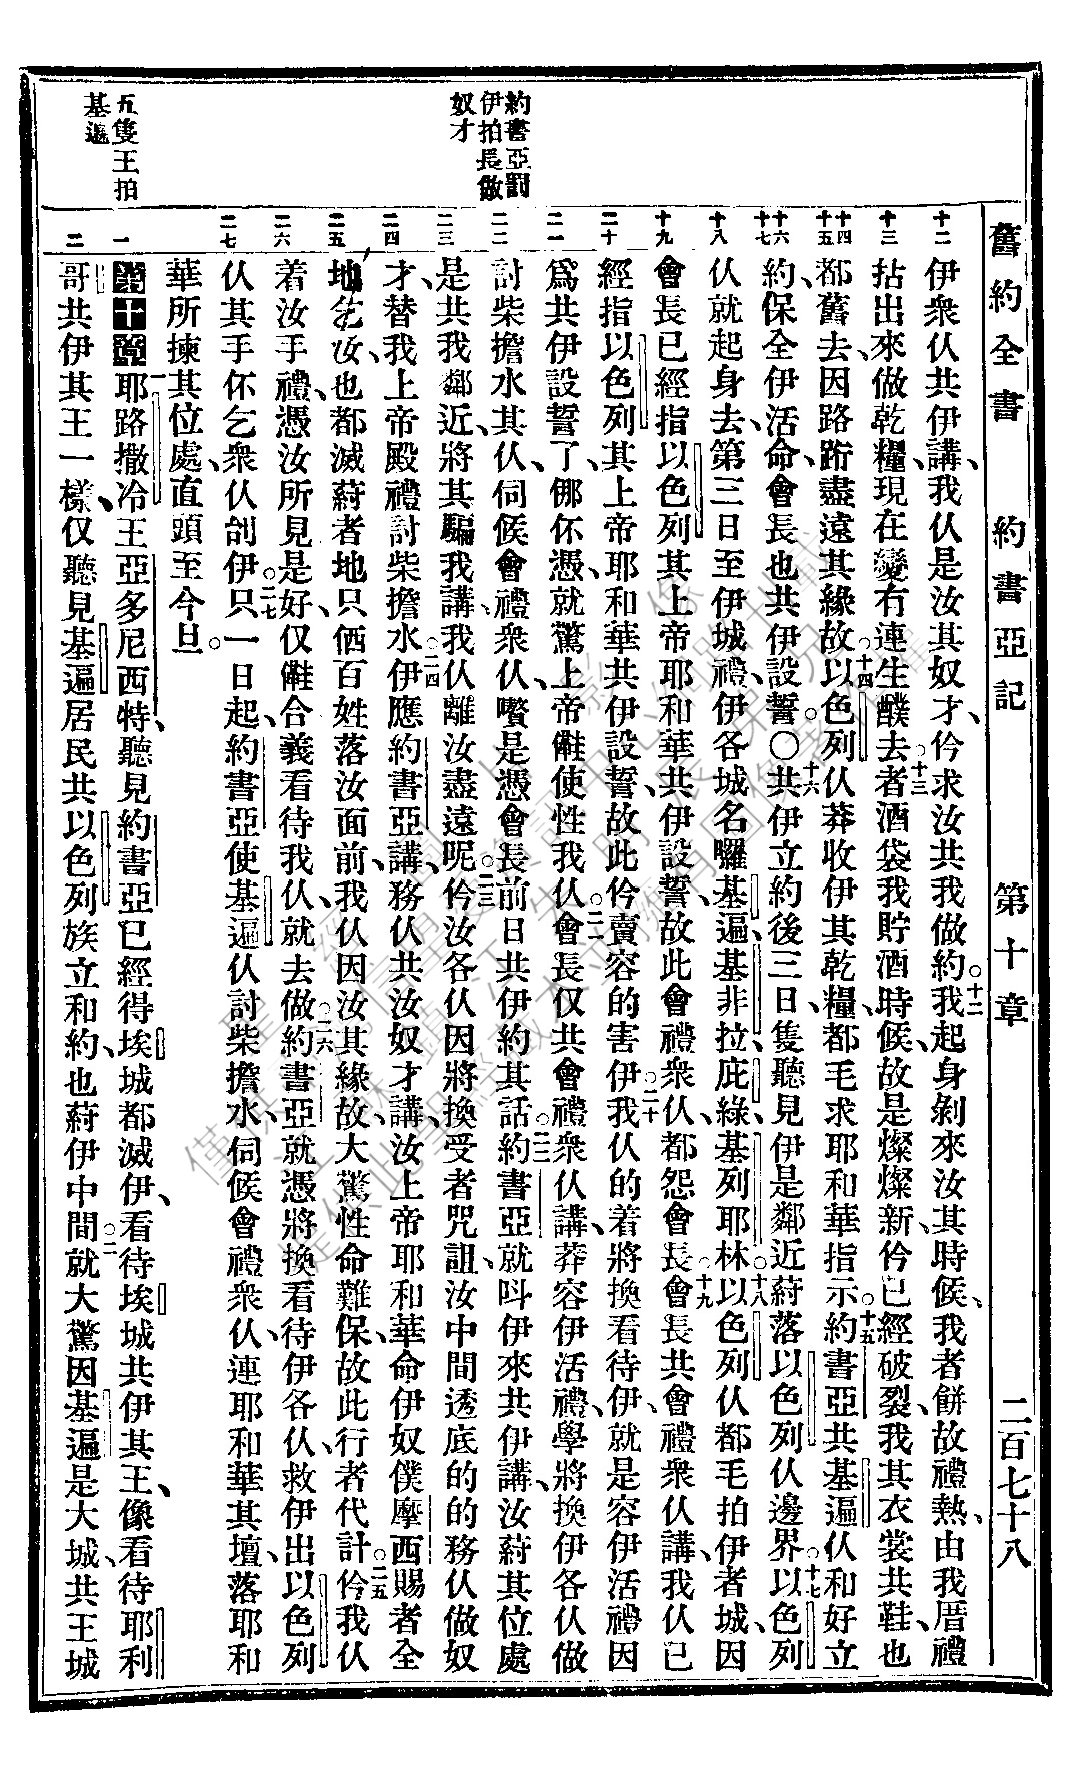 舊約全書 約書亞記 第十章 二百七十八
約書亞罰
伊拍長做
奴才
五隻王拍
基遍
十二
伊衆仈共伊講、我仈是汝其奴才、仱求汝共我做約。○十二我起身剝來汝其時候、我者餅故禮熱、由我厝禮
十三
拈出來做乾糧、現在變冇連生醭去。○十三者酒袋我貯酒時候、故是燦燦新、仱已經破裂、我其衣裳共鞋也
十四
十五
都舊去、因路䟓盡遠其緣故。○十四以色列仈莽收伊其乾糧、都毛求耶和華指示。○十五約書亞共基遍仈和好立
十六
十七
約、保全伊活命、會長也共伊設誓。○○十六共伊立約後三日、隻聽見伊是鄰近、蒔落以色列仈邊界。○十七以色列
十八
仈就起身去、第三日至伊城禮、伊各城名囉基遍、基非拉、庇綠、基列耶林。○十八以色列仈都毛拍伊者城、因
十九
會長已經指以色列其上帝耶和華共伊設誓、故此會禮衆仈都怨會長。○十九會長共會禮衆仈講、我仈已
二十
經指以色列其上帝耶和華共伊設誓、故此仱賣容的害伊。○二十我仈的着將換看待伊、就是容伊活禮、因
二一
爲共伊設誓了、倻伓憑、就驚上帝㒁使性我仈。○二一會長仅共會禮衆仈講、莽容伊活禮、學將換伊各仈做
二二
討柴擔水其仈、伺候會禮衆仈、嚽是憑會長前日共伊約其話。○二二約書亞就呌伊來共伊講、汝蒔其位處
二三
是共我鄰近、將其騙我講、我仈離汝盡遠呢。○二三仱汝各仈因將換受者咒詛、汝中間透底的的務仈做奴
二四
才、替我上帝殿禮討柴擔水。○二四伊應約書亞講、務仈共汝奴才講、汝上帝耶和華命伊奴僕摩西賜者全
二五
地乞汝、也都滅蒔者地、只仾百姓落汝面前、我仈因汝其緣故大驚性命難保、故此行者代計。○二五仱我仈
二六
着汝手禮、憑汝所見是好、仅㒁合義看待我仈、就去做。○二六約書亞就憑將換看待伊各仈、救伊出以色列
二七
仈其手、伓乞衆仈刣伊。○二七只一日起、約書亞使基遍仈討柴擔水、伺候會禮衆仈、連耶和華其壇、落耶和
華所揀其位處、直頭至今旦。
一
第十章 耶路撒冷王亞多尼西特、聽見約書亞已經得埃城都滅伊、看待埃城共伊其王、像看待耶利
二
哥共伊其王一樣、仅聽見基遍居民共以色列族立和約、也蒔伊中間。○二就大驚、因基遍是大城、共王城